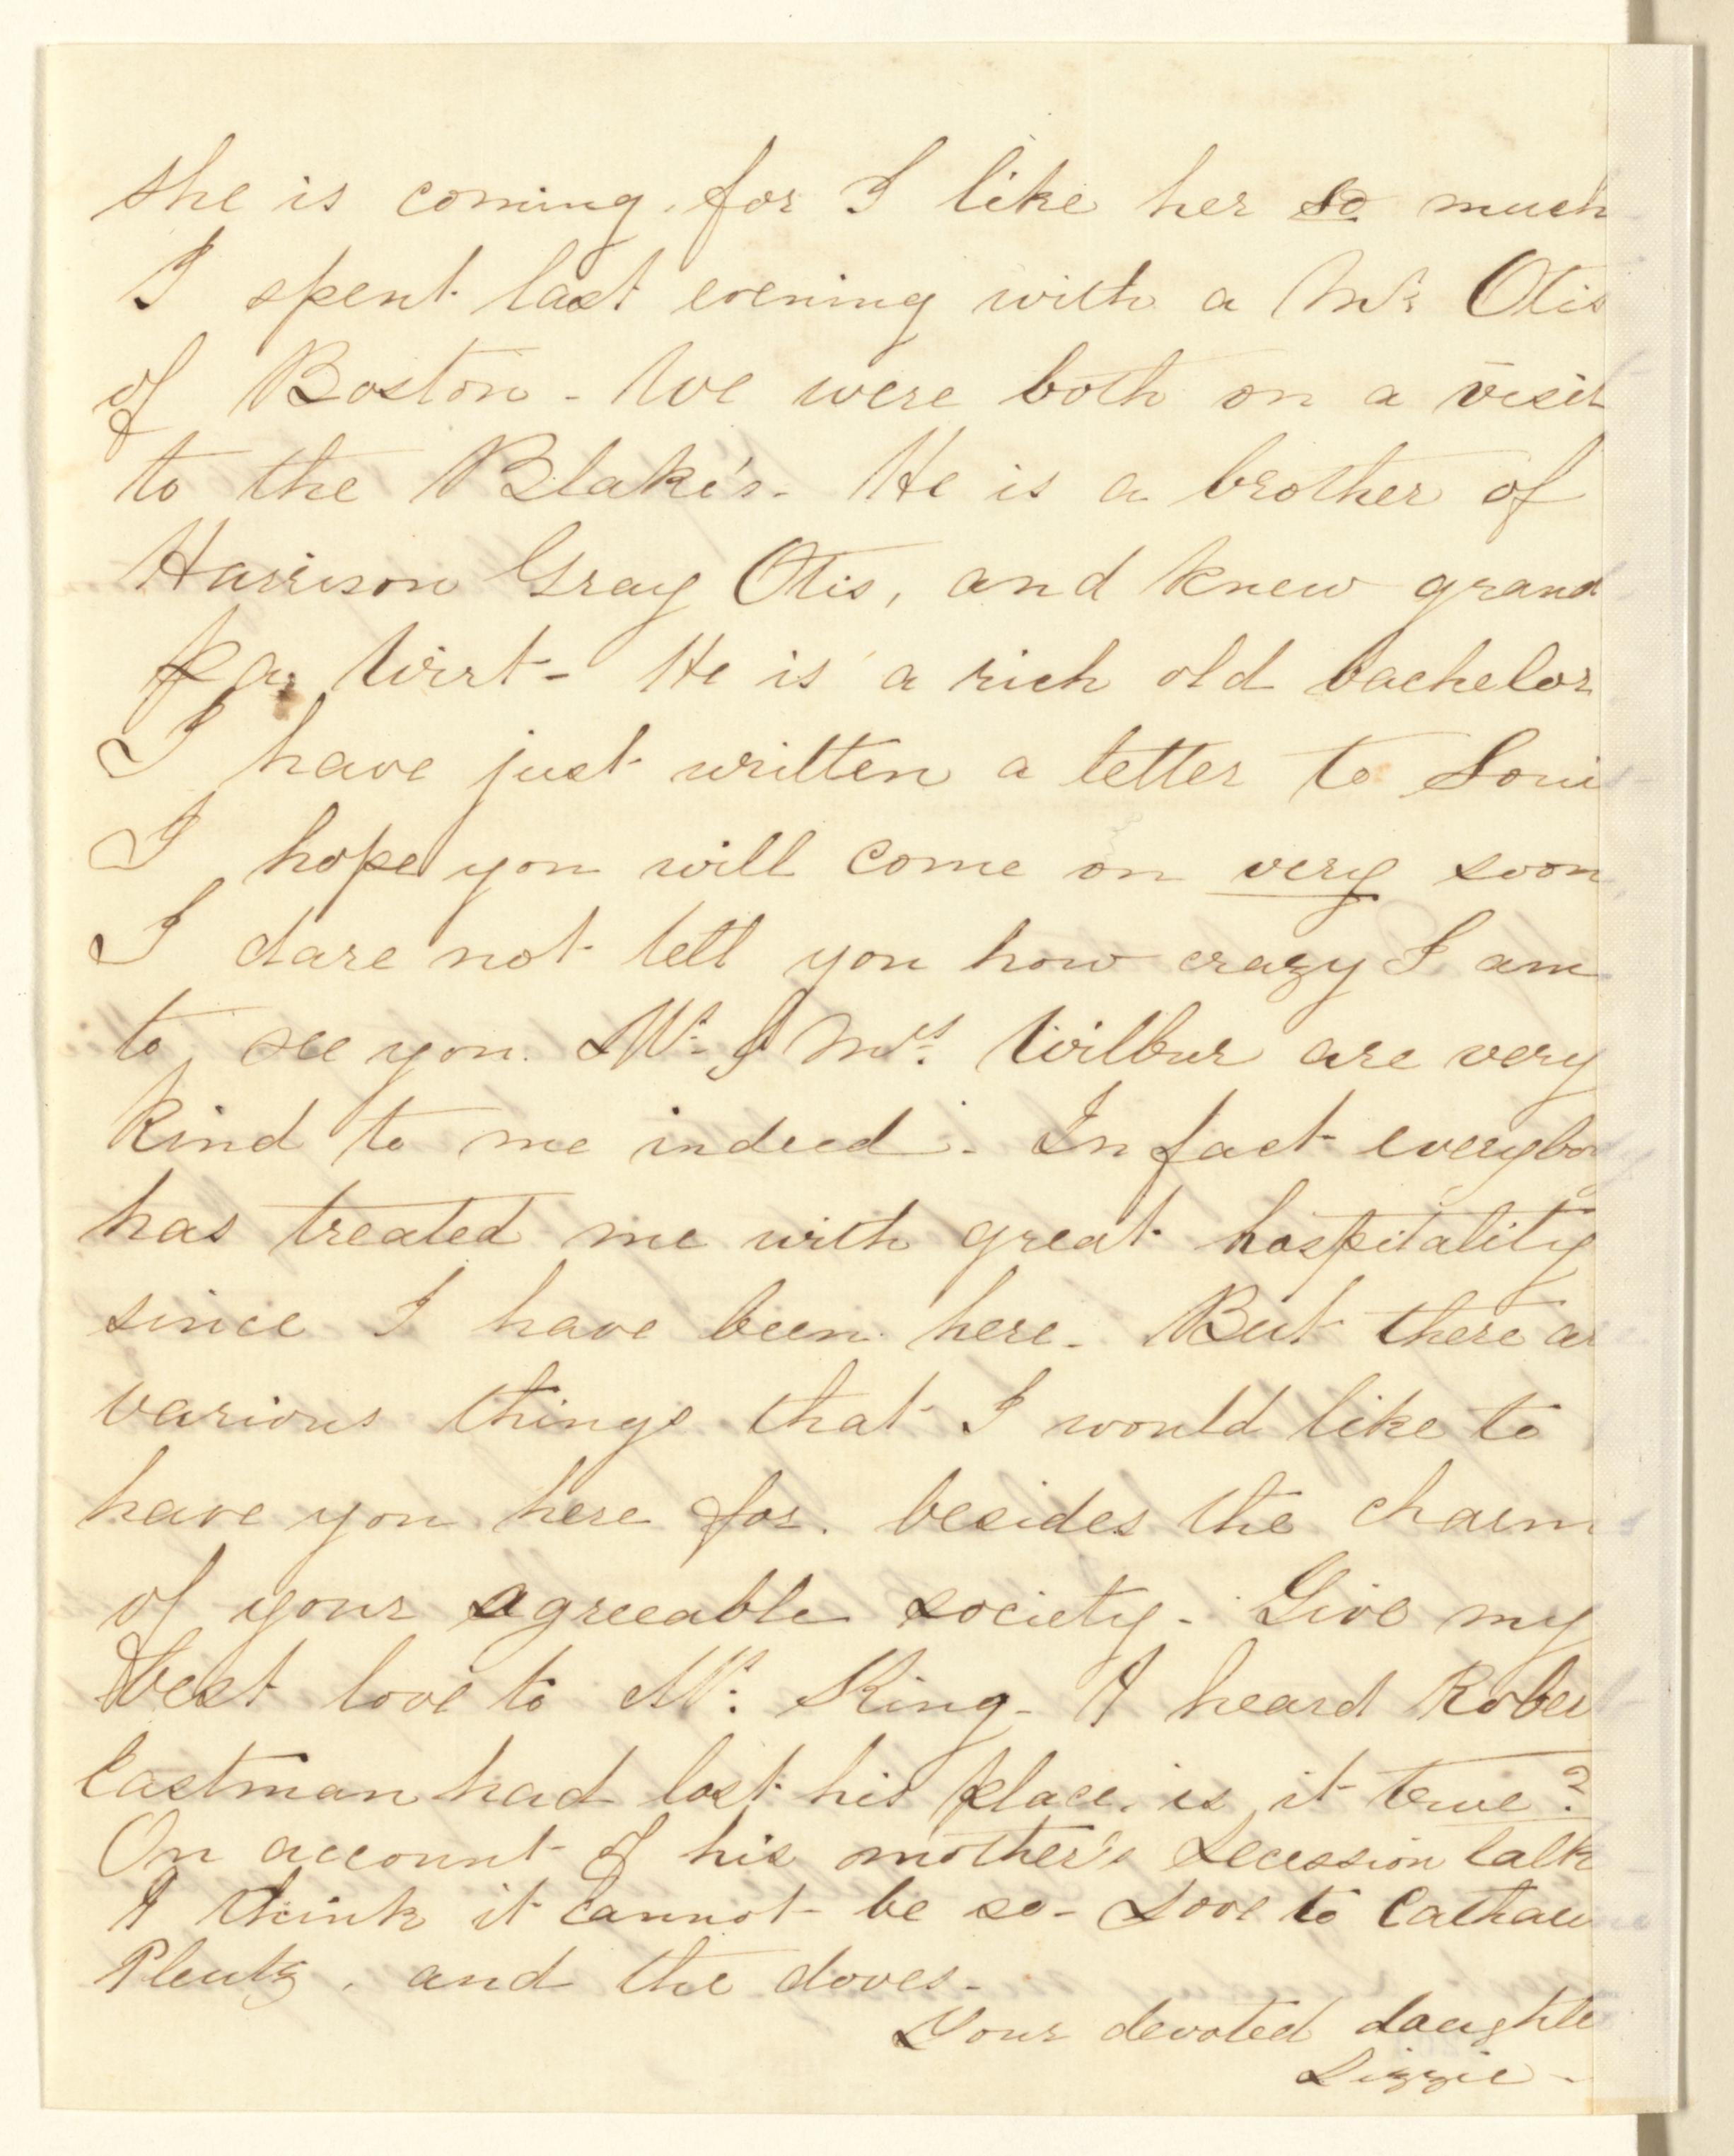 she is coming. for I like her so much
I spent last evening with a Mr Otis
of Boston - We were both on a visit
to the Blake's - He is a brother of
Harrison Gray Otis, and knew grand
pa Wirt - He is a rich old bachelor
I have just written a letter to Loui
I hope you will come on very soon
I dare not tell you how crazy I am
to see you. Mr. & Mrs. Wilbur are very
kind to me indeed. In fact everybo
has treated me with great hospitality
since I have been here - But there ar
various things that I would like to
have you here for. besides the charm
of your agreeable society - Give my
best love to Mr. King - I heard Rober
Eastman had lost his place. is it true?
On account of his mother's Secession talk
I think it cannot be so - Love to
and the doves -
Your devoted daughte
Lizzie -